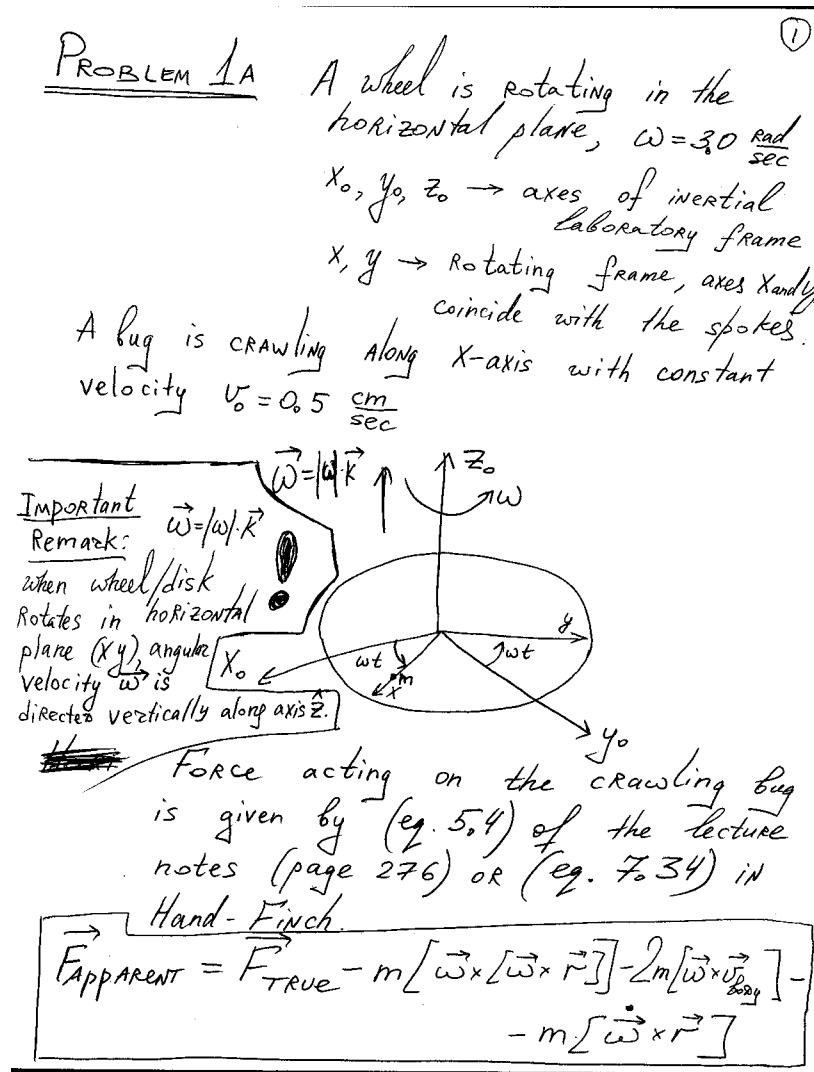 1
PROBLEM 1A
A wheel is rotating in the
horizontal plane, ω = 3.0 rad/sec
x₀, y₀, z₀ → axes of inertial
laboratory frame
x, y → Rotating frame, axes x and y
coincide with the spokes.
A bug is crawling along X-axis with constant
velocity v₀ = 0.5 cm/sec
ω⃗ = |ω|·k⃗
Z₀
ω
Important
Remark:
ω⃗ = |ω|·k⃗
!
when wheel/disk
Rotates in horizontal
plane (xy), angular
velocity ω⃗ is
directed vertically along axis ẑ.
X₀
ωt
m
x
y
ωt
y₀
Force acting on the crawling bug
is given by (eq. 5.4) of the lecture
notes (page 276) OR (eq. 7.34) in
Hand-Finch.
F⃗_APPARENT = F⃗_TRUE − m[ω⃗ × [ω⃗ × r⃗]] − 2m[ω⃗ × v⃗_body] −
− m[ω⃗̇ × r⃗]